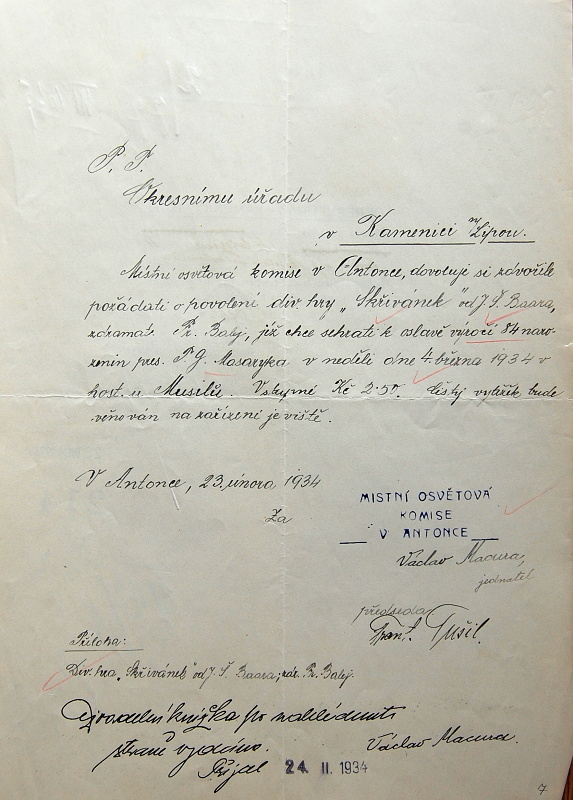 P. T.
Okresnímu úřadu
v Kamenici n/ Lipou.
Místní osvětová komise v Antonce, dovoluji si zdvořile
požádati o povolení div. hry „Skřivánek" od J. Š. Baara,
zdramat. Fr. Balej, již chce sehráti k oslavě výročí 84 naro-
zenin pres. T. G. Masaryka v neděli dne 4. března 1934 v
host. u Musilů. Vstupné Kč 2·50. Čistý výtěžek bude
věnován na zařízení jeviště.
V Antonce, 23. února 1934
Za
MISTNÍ OSVĚTOVÁ
KOMISE
V ANTONCE
Václav Macura,
jednatel
předseda
Frant. Tušil.
Příloha:
Div. hra „Skřivánek" od J. Š. Baara; zdr. Fr. Balej.
Divadelní knížka po nahlédnutí
straně vydána.
Václav Macura.
Přijal 24. II. 1934
7